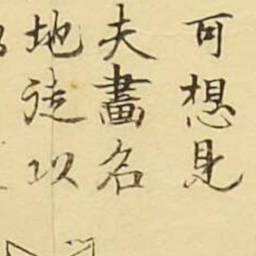 可想見
夫畫名
地徒以